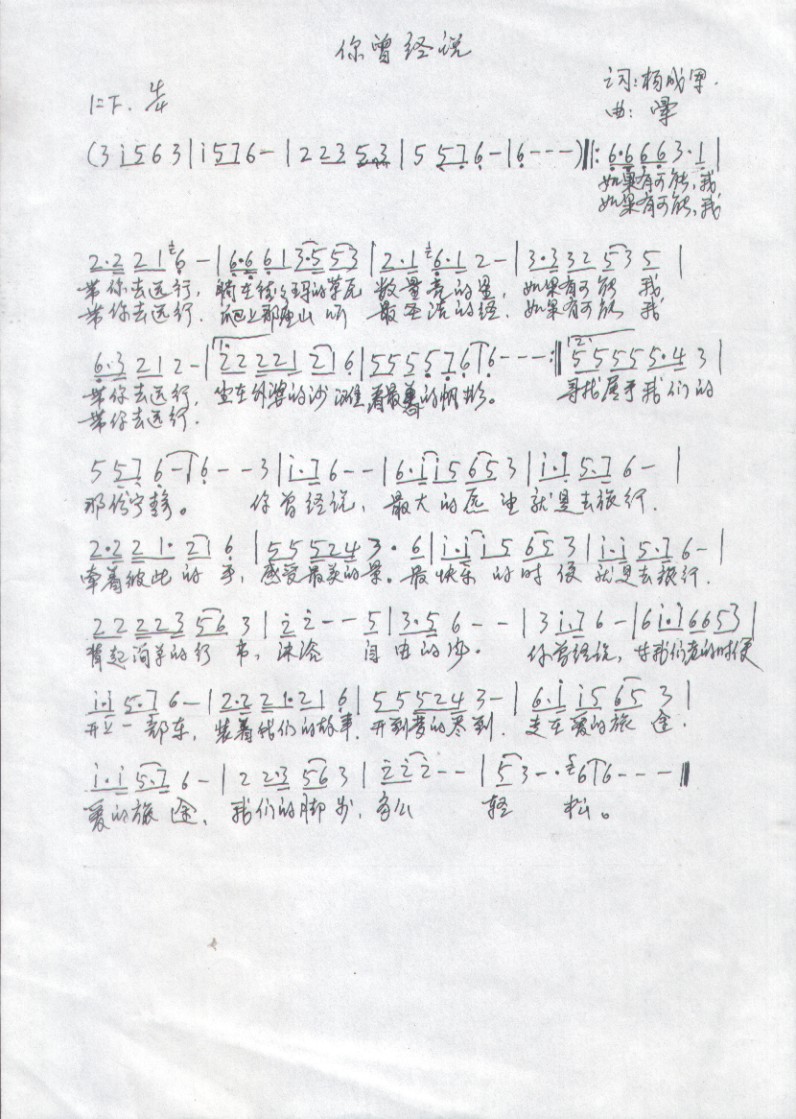 你曾经说
词:杨成军.
1=F. 4/4
曲:
(3 i 5 6 3 | i 5 7 6 - | 2 2 3 5 3 | 5 5 7 6 - | 6 - - - ) ‖: 6·6 6 6 3·1 |
如果有可能,我
如果有可能,我
2·2 2 1 6 - | 6·6 6 1 3·5 5 3 | 2·1 6·1 2 - | 3·3 3 2 5 3 5 |
带你去远行, 骑在 的草原 数最亮的星, 如果有可能 我
带你去远行. 爬上那座山 听 最圣洁的经. 如果有可能 我
6·3 2 1 2 - | 1. 2 2 2 2 1 2 | 6 | 5 5 5 5 5 7 6 | 6 - - - :‖ 2. 5 5 5 5 5·4 3 |
带你去远行, 坐在外婆的沙滩看最美的帆影。 寻找属于我们的
带你去远行.
5 5 7 6 - | 6 - - 3 | i·7 6 - - | 6·i i 5 6 5 3 | i·i 5·7 6 - |
那份宁静。 你曾经说, 最大的愿望就是去旅行.
2·2 2 1· 2 6 | 5 5 5 2 4 3 · 6 | i·i i 5 6 5 3 | i·i 5·7 6 - |
牵着彼此的手, 感受最美的景. 最快乐的时候 就是去旅行.
2 2 2 2 3 5 6 3 | 2 2 - - 5 | 3·5 6 - - | 3 i·7 6 - | 6 i·7 6 6 5 3 |
背起简单的行 , 沐浴 自由的 . 你曾经说, 我们老的时候
i·i 5·7 6 - | 2·2 2 1·2 1 6 | 5 5 5 2 4 3 - | 6·i i 5 6 5 3 |
开上一部车, 装着我们的故事. 开到梦的尽到. 走在爱的旅途.
i·i 5·7 6 - | 2 2·3 5 6 3 | 2 2 2 - - | 5 3 - · 6 | 6 - - - ‖
爱的旅途, 我们的脚步, 多么 轻 松。